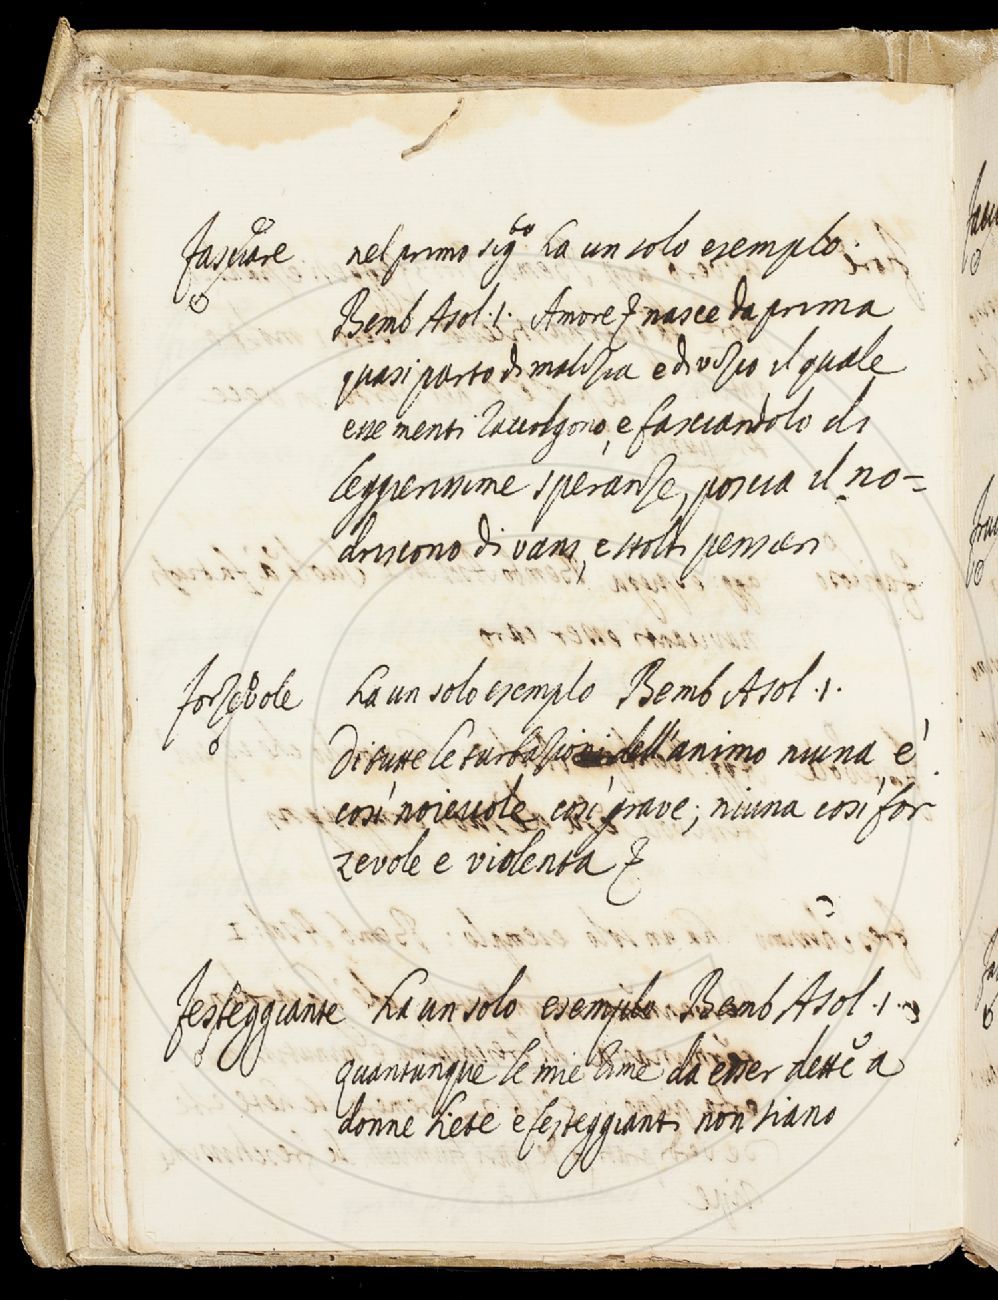 Fasciare nel primo sig.to ha un solo esempio.
Bemb Asol. 1. Amore & nasce da prima
quasi parto di malizia e di vizio il quale
esse menti raccolgono, e fasciandolo di
leggierissime speranze, poscia il no=
driscono di vani, e stolti pensieri
forzevole ha un solo esempio Bemb Asol. 1.
Di tutte le turbazioni dell'animo niuna è
così noievole così grave; niuna così for
zevole e violenta &
festeggiante ha un solo esempio Bemb Asol. 1.
quantunque le mie rime da esser dette a
donne liete e festeggianti non siano